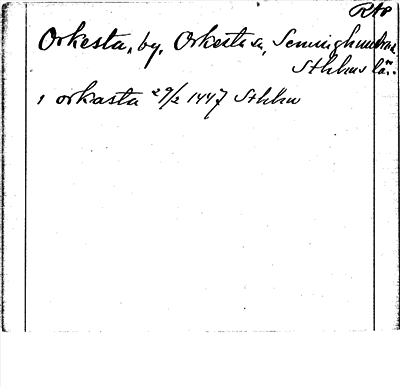 RAP
Orkesta, by, Orkesta sn, Seminghundra hd,
Sthlms län.
i orkasta 29/2 1447 Sthlm